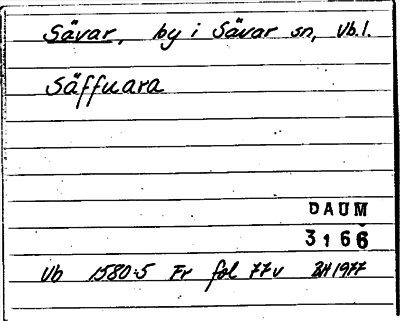 Sävar, by i Sävar sn, Vb.l.
Säffuara
DAUM
3166
Vb 1580:5 Fr fol 77v BH 1977